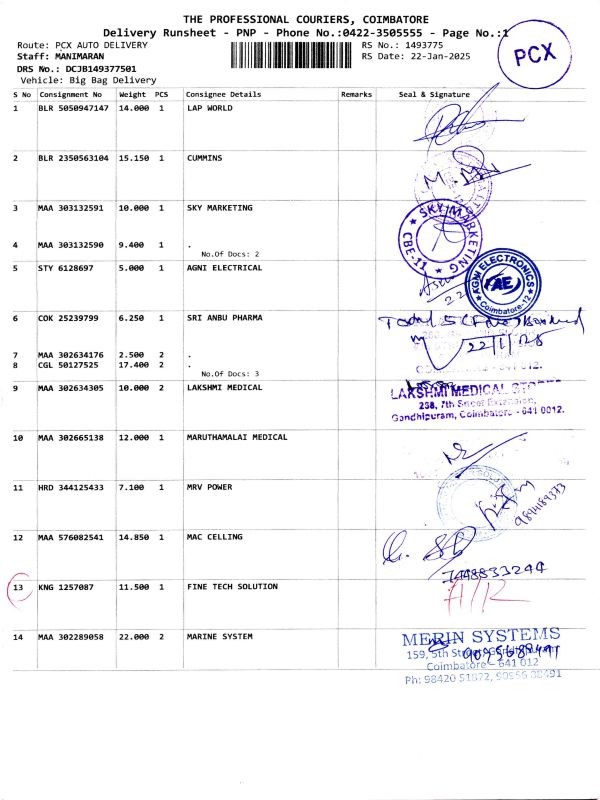 THE PROFESSIONAL COURIERS, COIMBATORE
Delivery Runsheet - PNP - Phone No.:0422-3505555 - Page No.:1
Route: PCX AUTO DELIVERY RS No.: 1493775
Staff: MANIMARAN RS Date: 22-Jan-2025
DRS No.: DCJB149377501
Vehicle: Big Bag Delivery
PCX
S No Consignment No Weight PCS Consignee Details Remarks Seal & Signature
1 BLR 5050947147 14.000 1 LAP WORLD
2 BLR 2350563104 15.150 1 CUMMINS
3 MAA 303132591 10.000 1 SKY MARKETING
SKY MARKETING
CBE-11
4 MAA 303132590 9.400 1 .
No.Of Docs: 2
5 STY 6128697 5.000 1 AGNI ELECTRICAL
AGNI ELECTRONICS
AE
Coimbatore-12
6 COK 25239799 6.250 1 SRI ANBU PHARMA
Total 5 (Five) Box
22/1/25
7 MAA 302634176 2.500 2 .
8 CGL 50127525 17.400 2 .
No.Of Docs: 3
9 MAA 302634305 10.000 2 LAKSHMI MEDICAL
LAKSHMI MEDICAL STORES
238, 7th Street Extension,
Gandhipuram, Coimbatore - 641 0012.
10 MAA 302665138 12.000 1 MARUTHAMALAI MEDICAL
11 HRD 344125433 7.100 1 MRV POWER
9894189373
12 MAA 576082541 14.850 1 MAC CELLING
7448833244
13 KNG 1257087 11.500 1 FINE TECH SOLUTION
14 MAA 302289058 22.000 2 MARINE SYSTEM
MERIN SYSTEMS
159, 5th Street
9095688491
Coimbatore - 641 012
Ph: 98420 51872, 90956 88491